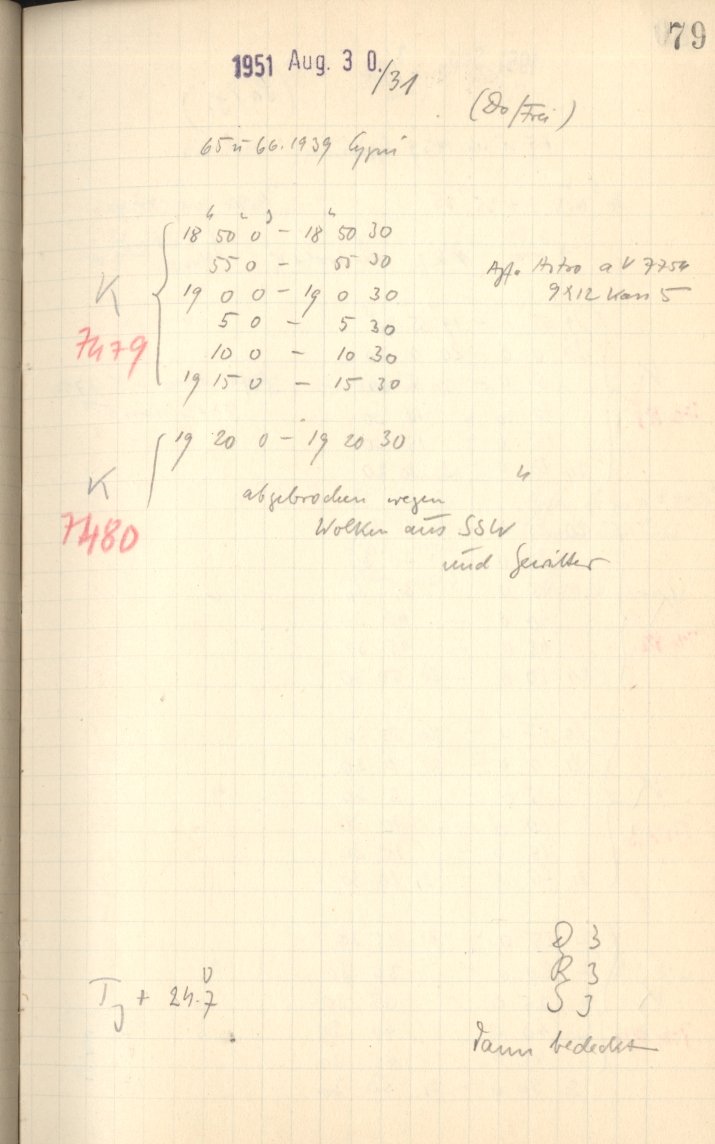 79
1951 Aug. 30./31
(Do/Frei)
65 u 66.1939 Cygni
18 50 0 – 18 50 30
55 0 – 55 30
19 0 0 – 19 0 30
5 0 – 5 30
10 0 – 10 30
19 15 0 – 15 30
K
7479
Agfa Astro 7754
9x12 Kass 5
19 20 0 – 19 20 30
K
7480
"
abgebrochen wegen
Wolken aus SSW
und Gewitter
D 3
R 3
S 3
T + 24.7
dann bedeckt